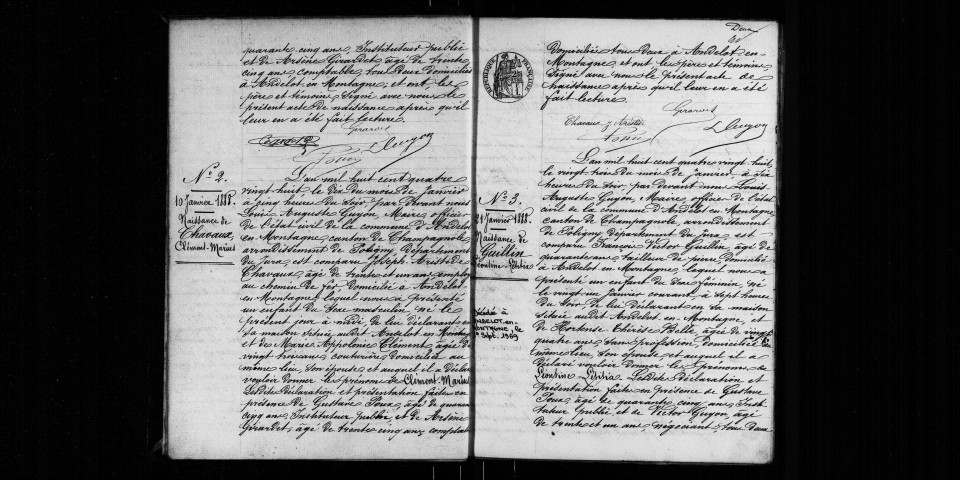 quarante cinq ans, Instituteur public
et de Arsène Girardet, âgé de trente
cinq ans comptable, tous deux domiciliés
à Andelot en Montagne; et ont, les
père et témoins, signé avec nous le
présent acte de naissance après qu'il
leur en a été fait lecture.
Guyon
N° 2.
10 Janvier 1888.
Naissance de
Chavaux,
Clément-Marius
L'an mil huit cent quatre
vingt huit, le dix du mois de Janvier
à cinq heures du soir, par devant nous
Louis Auguste Guyon, Maire, officier
de l'état civil de la commune d'Andelot
en Montagne, canton de Champagnole,
arrondissement de Poligny, département
du Jura est comparu Joseph Aristide
Chavaux, âgé de trente et un ans, employé
au chemin de fer domicilié à Andelot
en Montagne lequel nous a présenté
un enfant du sexe masculin né le
présent jour à midi de lui déclarant en
sa maison située audit Andelot en Montagne
et de Marie Appolonie Clément, âgée de
vingt trois ans, couturière, domiciliée au
même lieu, son épouse et auquel il a déclaré
vouloir donner les prénoms de Clément-Marius
Lesdite déclaration et présentation faites en
présence de Gustave Joux, âgé de quarante
cinq ans, Instituteur public et de Arsène
Girardet, âgé de trente cinq ans, comptable
Deux
RÉPUBLIQUE FRANÇAISE
domiciliés tous deux à Andelot en
Montagne et ont les père et témoins
signé avec nous le présent acte de
naissance après qu'il leur en a été
fait lecture.
Chavaux Aristide
L Guyon
N° 3.
21 Janvier 1888.
Naissance de
Guillin
Léontine-Létitia
Décédée à
ANDELOT-en-
MONTAGNE, le
Sept. 1969
L'an mil huit cent quatre vingt huit,
le vingt trois du mois de janvier, à six
heures du soir, par devant nous Louis
Auguste Guyon, Maire, officier de l'état
civil de la commune d'Andelot en Montagne,
canton de Champagnole, arrondissement
de Poligny département du Jura est
comparu François Victor Guillin, âgé de
quarante ans, tailleur de pierre domicilié
à Andelot en Montagne, lequel nous a
présenté un enfant du sexe féminin, né
le vingt un janvier courant, à sept heures
du soir de lui déclarant en sa maison
située audit Andelot en Montagne et
de Hortense Thérèse Belle, âgée de vingt
quatre ans, sans profession, domiciliée au
même lieu, son épouse et auquel il a
déclaré vouloir donner les prénoms de
Léontine Létitia Lesdite déclaration et
présentation faites en présence de Gustave
Joux, âgé de quarante cinq ans, Insti
tuteur public et de Victor Guyon, âgé
de trente et un ans, négociant, tous deux